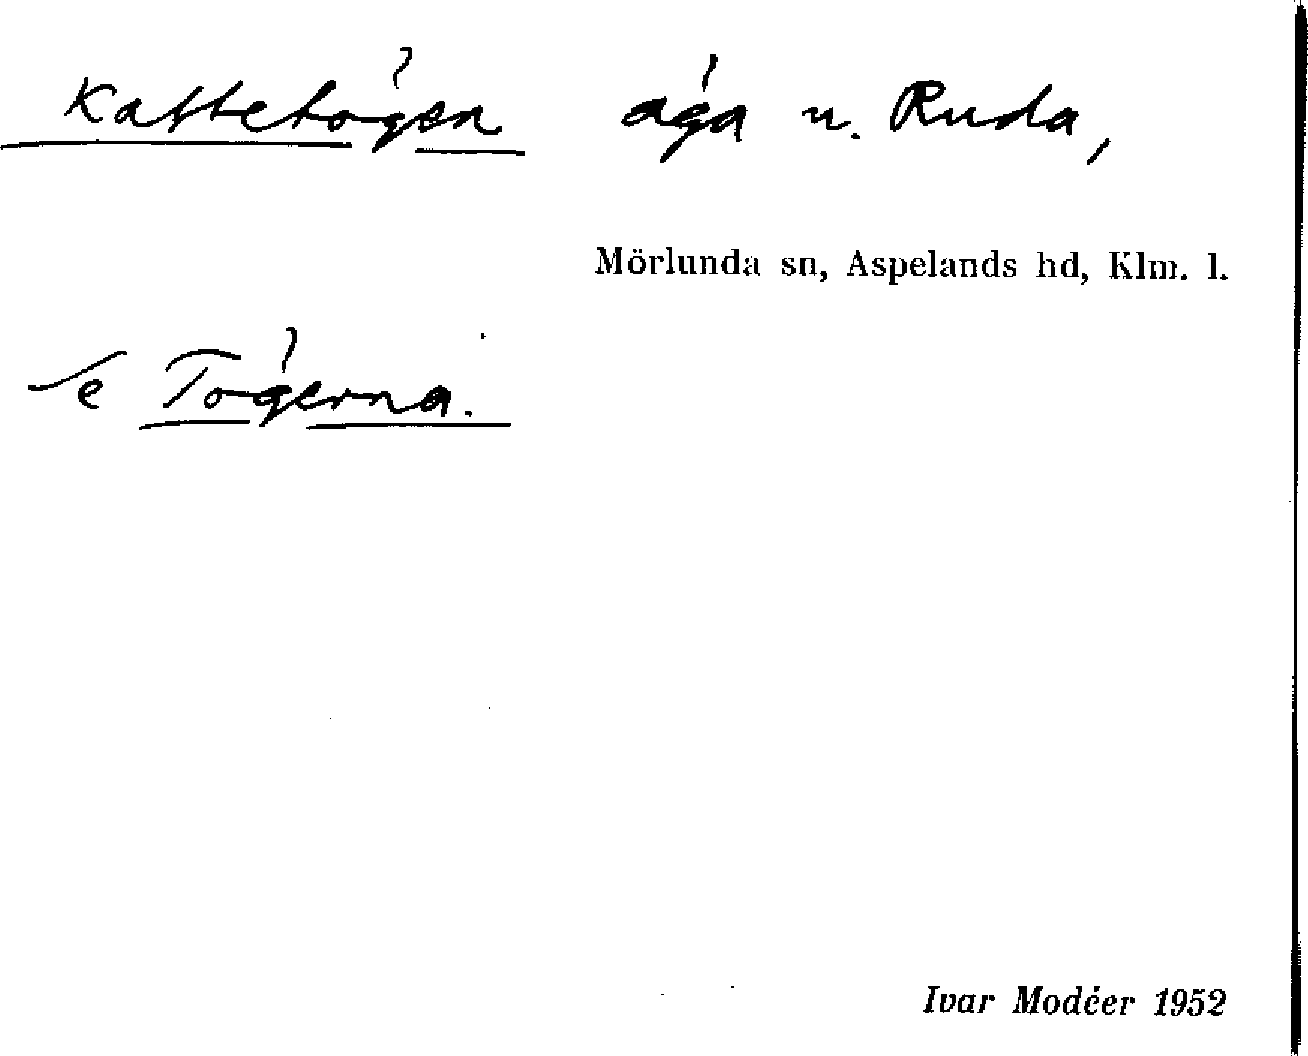 Kattetogen aga u. Ruda,
Mörlunda sn, Aspelands hd, Klm. l.
Se Togerna.
Ivar Modéer 1952